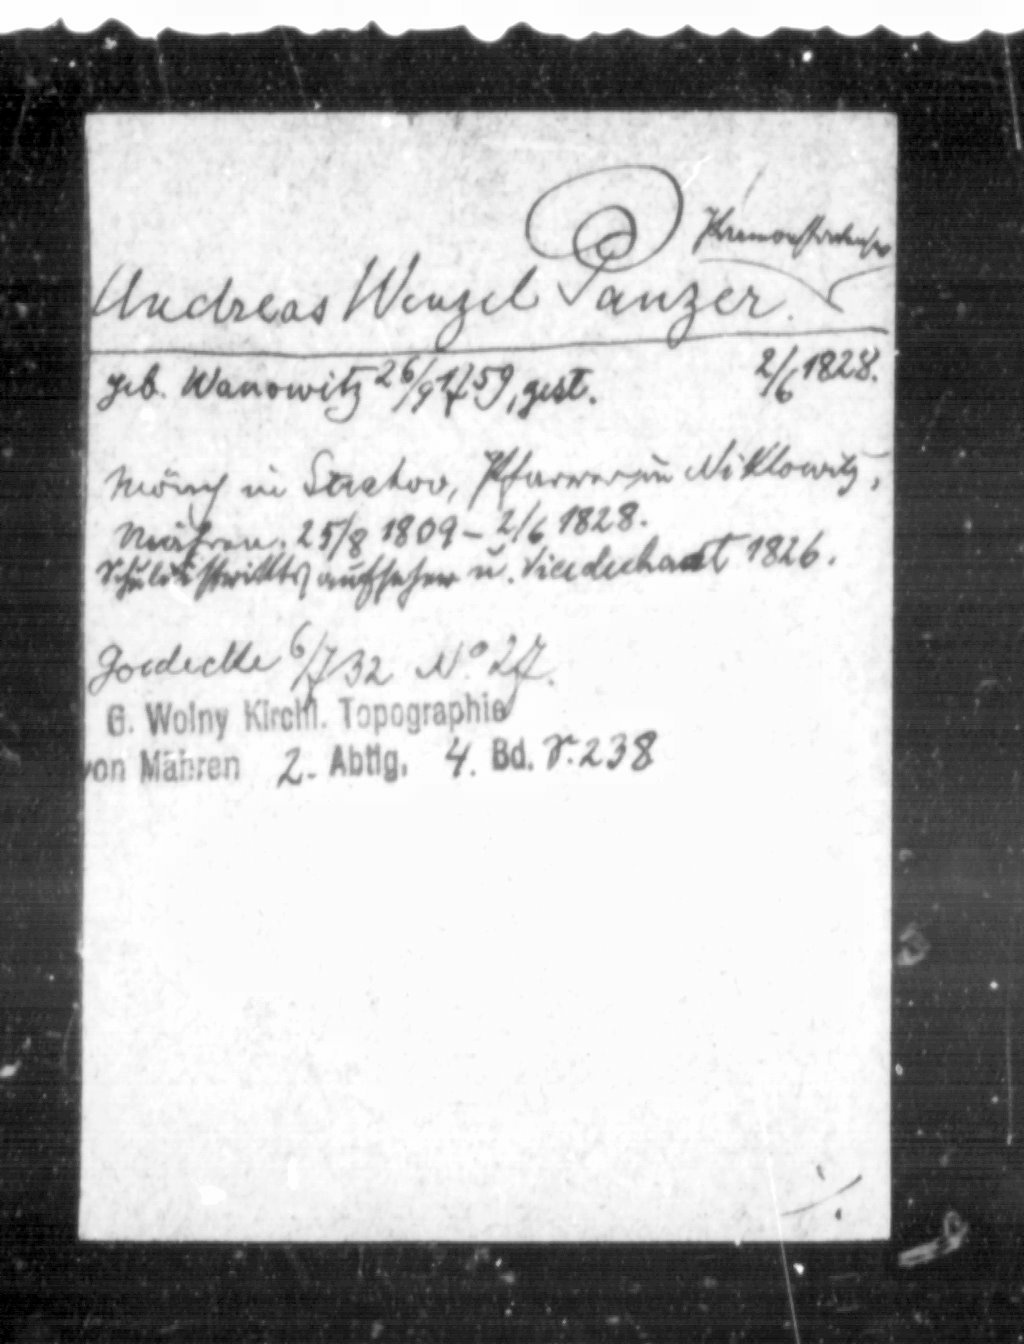 Prämonstratenser
Andreas Wenzel Panzer.
geb. Wanowitz 26/9 1759, gest. 2/6 1828.
Mönch in Strahov, Pfarrer in Niklowitz,
Mähren. 25/8 1809 – 2/6 1828.
Schuldistriktsaufseher u. Vicedechant 1826.
Goedecke 6/732 No 27.
G. Wolny Kirchl. Topographie
von Mähren 2. Abtlg. 4. Bd. S. 238